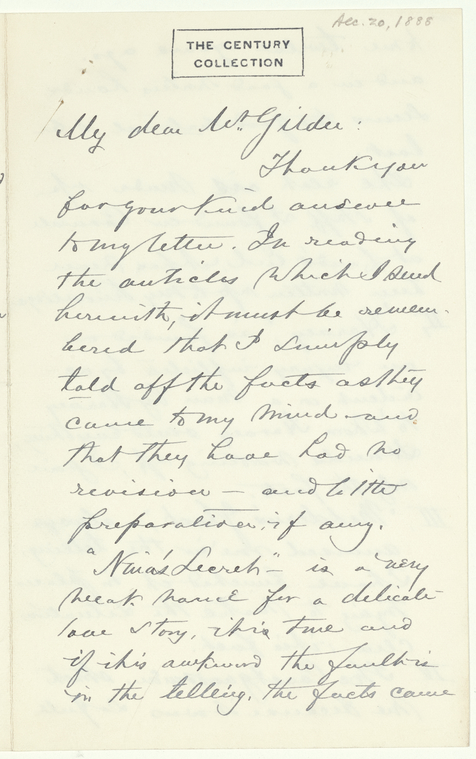 Dec. 20, 1888
THE CENTURY
COLLECTION
My dear Mr. Gilder:
Thank you
for your kind answer
to my letter. In reading
the articles which I send
herewith, it must be remem-
bered that I simply
told off the facts as they
came to my mind and
that they have had no
revision — and little
preparation, if any.
"Nina's Secret" is a very
weak name for a delicate
love story, it is true and
if it is awkward the fault is
in the telling, the facts came